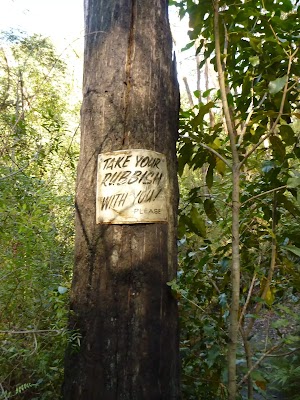 TAKE YOUR
RUBBISH
WITH YOU!
PLEASE